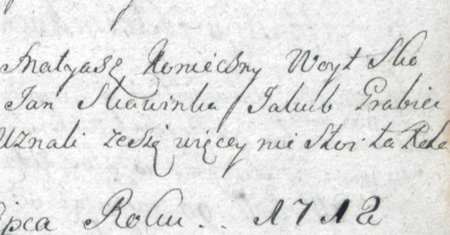 Matyasz Konieczny Woyt Sko
Jan Skawinka Jakub Grabiec
Uznali ze się więcey nie
lipca Roku .. 1712